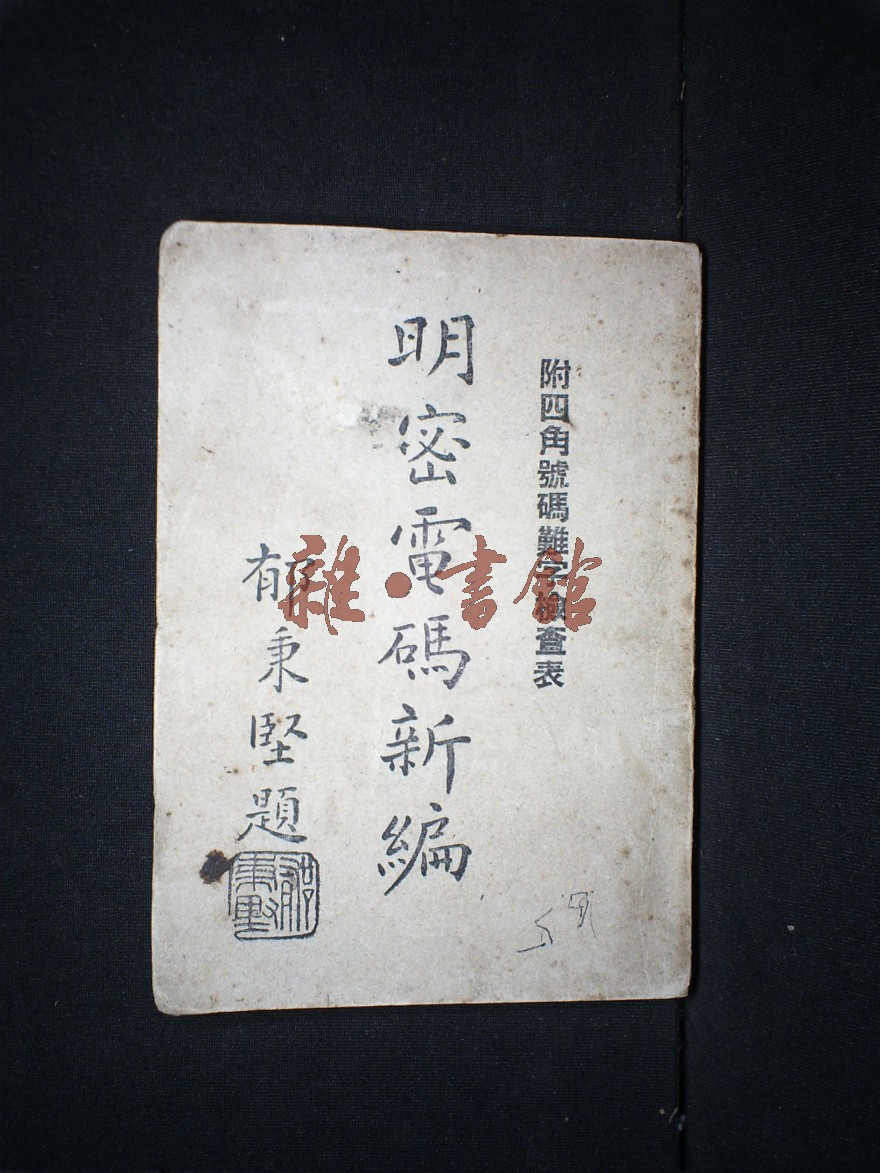 附四角號碼難字檢查表
明密電碼新編
郁秉堅題
郁秉堅
雜·書館